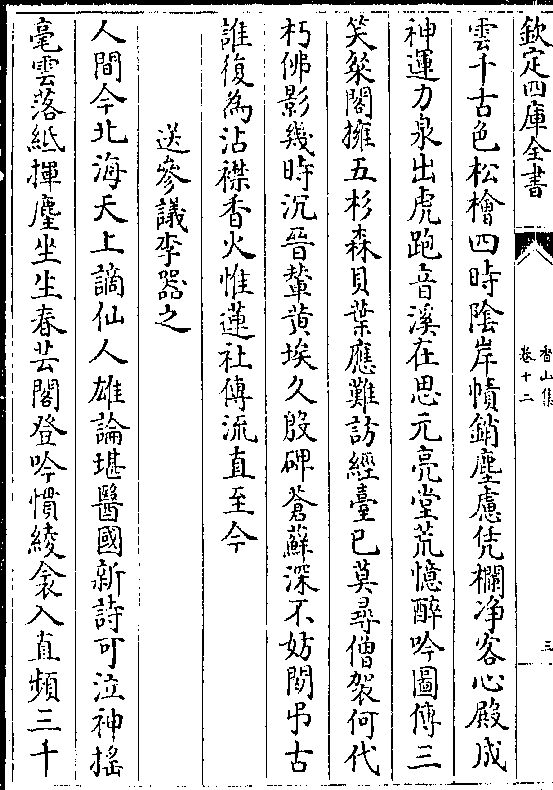 欽定四庫全書
香山集
卷十二
三
雲千古色松檜四時陰岸幘銷塵慮凭欄净客心殿成
神運力泉出虎跑音溪在思元亮堂荒憶醉吟圖傳三
笑粲閣擁五杉森貝葉應難訪經臺已莫尋僧袈何代
朽佛影幾時沉晉輦黄埃久殷碑蒼蘚深不妨閒弔古
誰復為沾襟香火惟蓮社傳流直至今
送參議李器之
人間今北海天上謫仙人雄論堪醫國新詩可泣神揺
毫雲落紙揮麈坐生春芸閣登吟慣綾衾入直頻三千